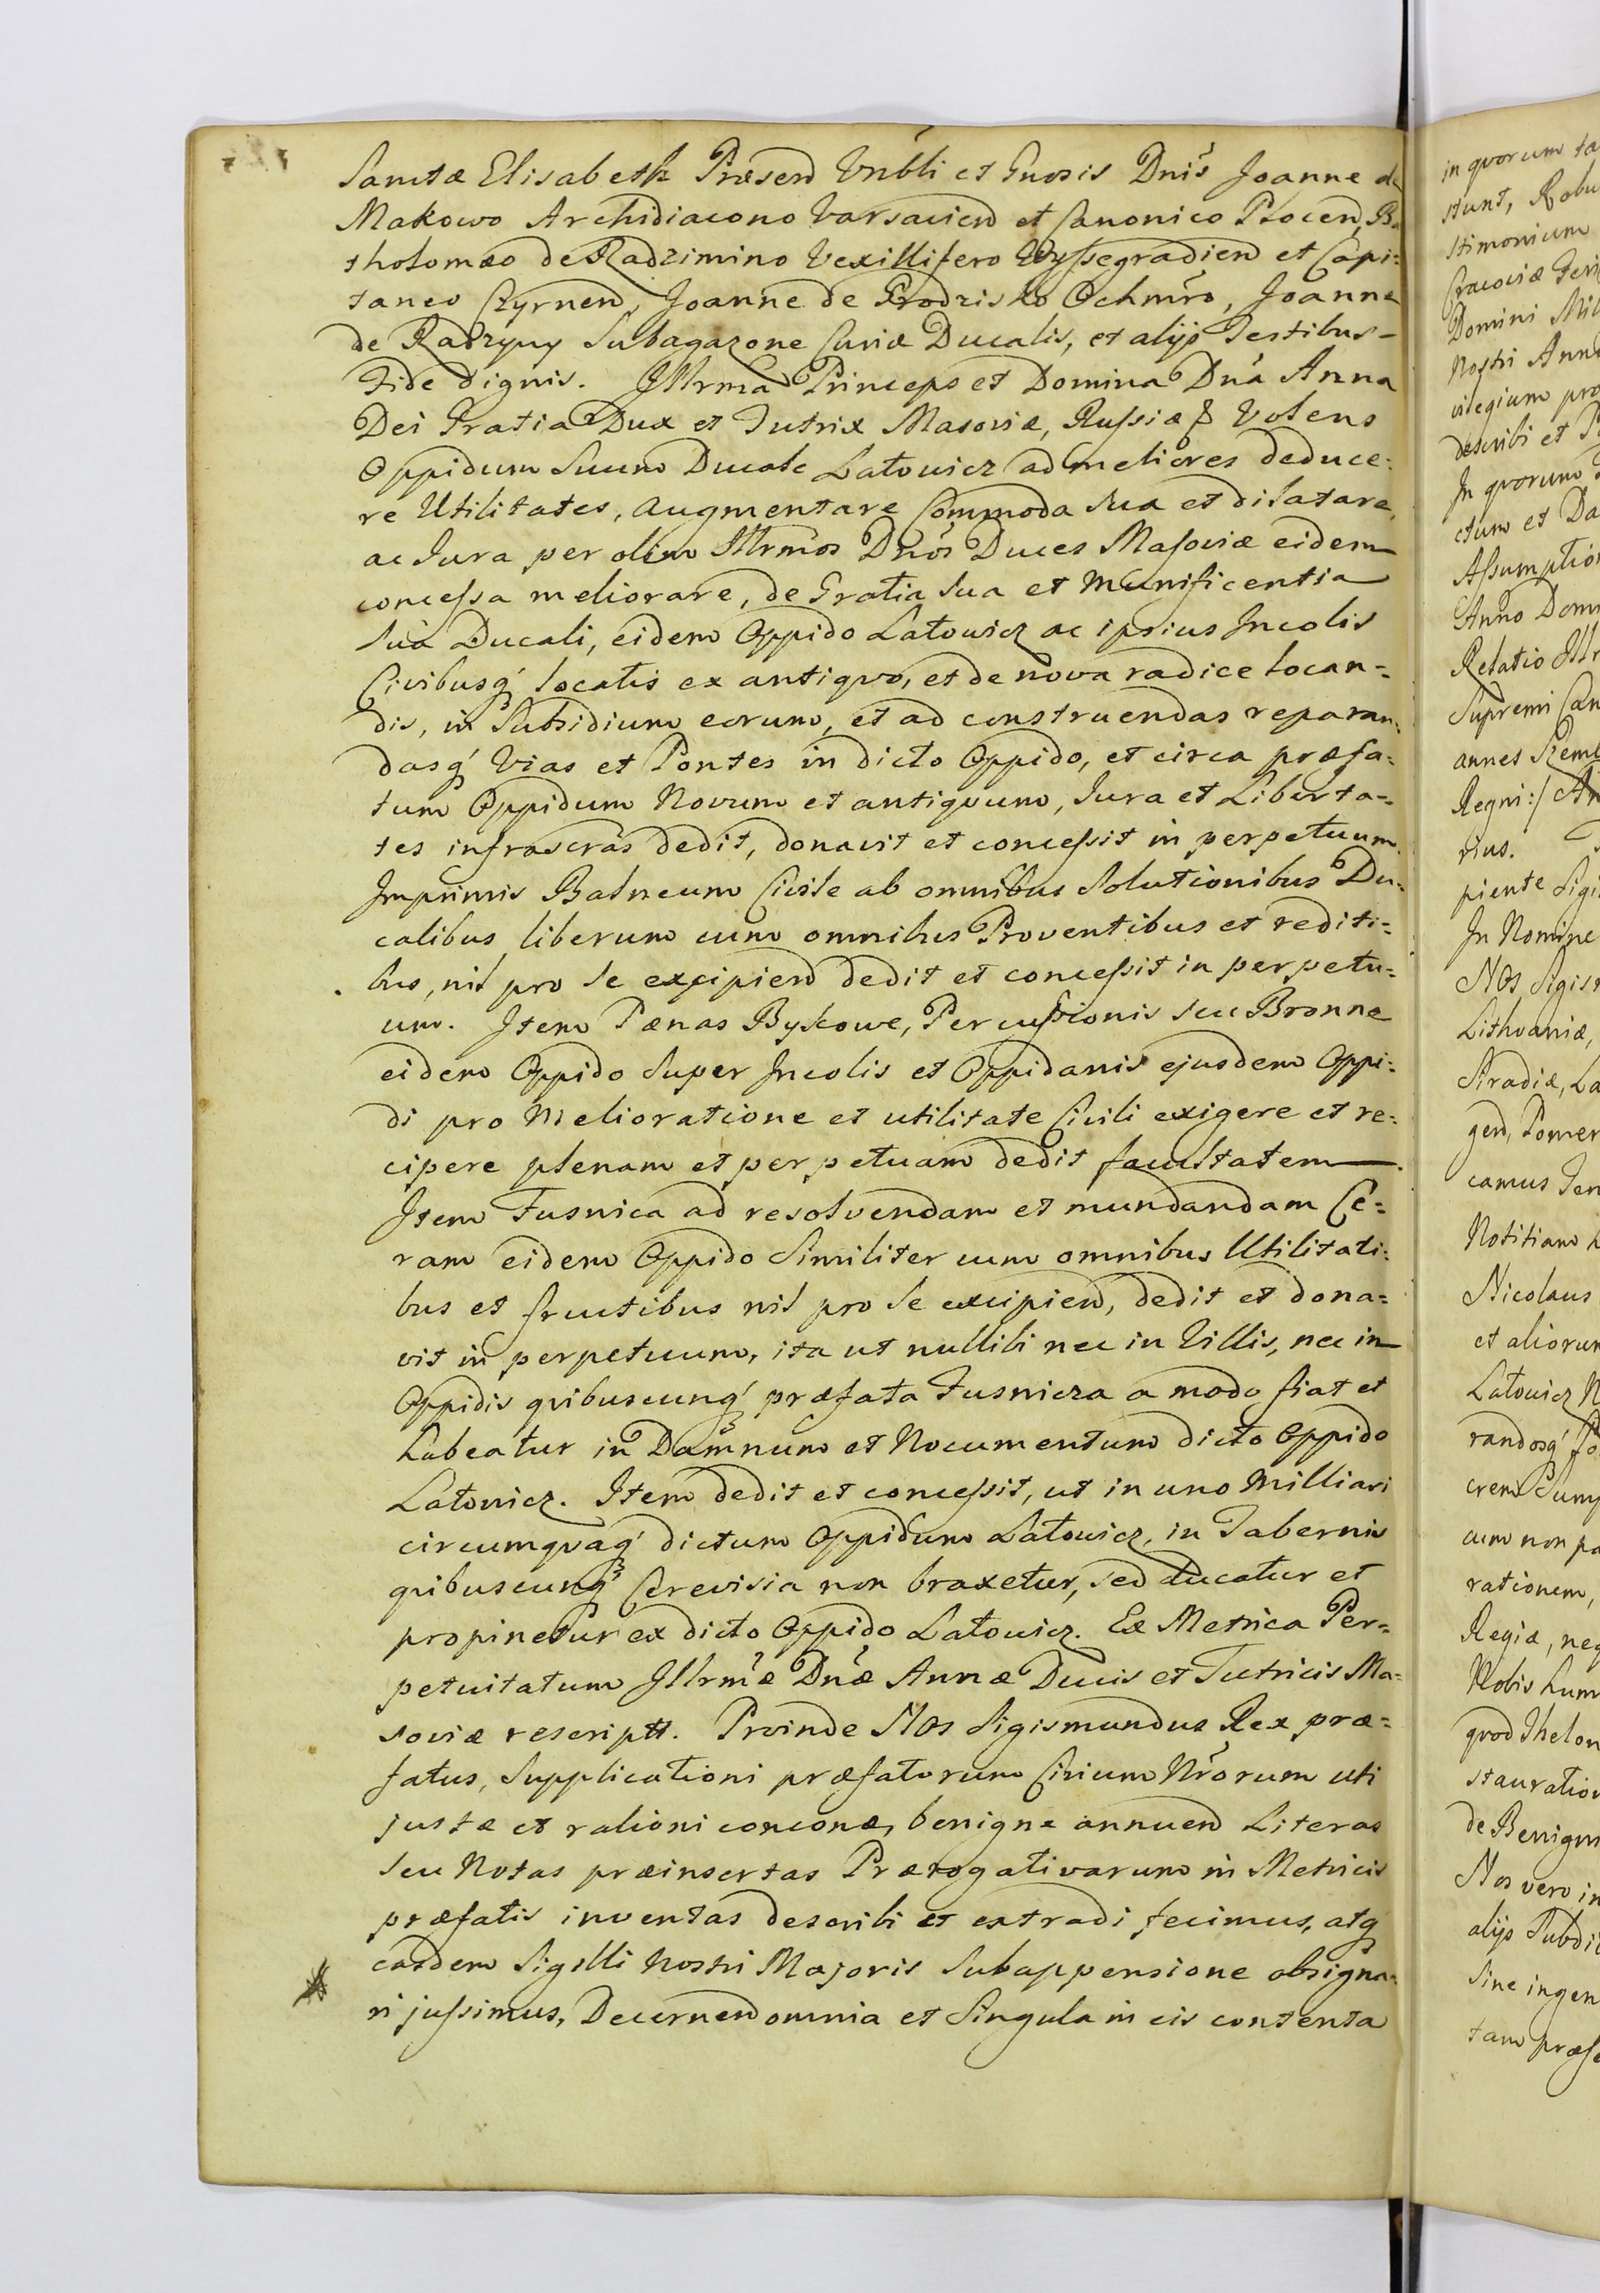 Sanctæ Elisabeth Præsend Vnbli et Gnosis Dnis Joanne de
Makowo Archidiacono Varsaviend et Canonico Plocend, Ba
tholomæo de Radzimino Vexillifero Wyssegradiend et Capi:
taneo Czyrnend, Joanne de Grodzisko Ochmro, Joanne
de Radzyny Subagazone Curiæ Ducalis, et alijs Testibus
Fide dignis. Illrma Princeps et Domina Dna Anna
Dei Gratia Dux et Tutrix Masoviæ, Russiæ & Volens
Oppidum Suum Ducale Latowicz ad meliores deduce:
re Utilitates, augmentare Commoda Sua et dilatare,
ac Jura per olim Illrmos Dnos Duces Masoviæ eidem
concessa meliorare, de Gratia Sua et Munificentia
Sua Ducali, eidem Oppido Latowicz ac ipsius Incolis
Civibusq' locatis ex antiqvo, et de nova radice locan=
dis, in Subsidium eorum, et ad construendas reparan:
dasq' Vias et Pontes in dicto Oppido, et circa præfa:
tum Oppidum Novum et antiqvum, Jura et Liberta=
tes infrascras dedit, donavit et concessit in perpetuum.
Imprimis Balneum Civile ab omnibus Solutionibus Du:
calibus liberum cum omnibus Proventibus et rediti=
bus, nil pro se excipiend dedit et concessit in perpetu=
um. Item Pænas Byskowe, Percussionis seu Bronne
eidem Oppido Super Incolis et Oppidanis ejusdem Oppi:
di pro Melioratione et utilitate Civili exigere et re:
cipere plenam et perpetuam dedit facultatem.
Item Fusnica ad resolvendam et mundandam Ce=
ram eidem Oppido Similiter cum omnibus Utilitati:
bus et fructibus nil pro se excipiend, dedit et dona=
vit in perpetuum, ita ut nullibi nec in Villis, nec in
Oppidis qvibuscunq' præfata Fusnicza a modo fiat et
habeatur in Damnum et Nocumentum dicto Oppido
Latowicz. Item dedit et concessit, ut in uno Milliari
circumqvaq' dictum Oppidum Latowicz, in Tabernis
qvibuscunq' Cerevisia non braxetur, sed ducatur et
propinetur ex dicto Oppido Latowicz. Ex Metrica Per=
petuitatum Illrmæ Dnæ Annæ Ducis et Tutricis Ma=
soviæ rescriptt. Proinde Nos Sigismundus Rex præ=
fatus, Supplicationi præfatorum Civium Nrorum uti
justæ et rationi conconæ, benigne annuend Literas
seu Notas præinsertas Prærogativarum in Metricis
præfatis inventas describi et extradi fecimus, atq
easdem Sigilli Nostri Majoris Subappensione obsigna=
ri jussimus, Decernend omnia et Singula in eis contenta
in qvorum
stunt, Robu
stimonium
Cracoviæ Feri
Domini Mil
Nostri Anno
vilegium pro
describi et
In qvorum
ctum et Da
Assumption
Anno Domi
Relatio Illr
Supremi Can
annes Szemb
Regni:/
rius.
piente Sigi
In Nomine
NOS Sigis
Lithvaniæ,
Siradiæ, La
gend, Pomer
camus Ten
Notitiam h
Nicolaus
et aliorum
Latowicz N
randosq' Po
crem Sump
cum non pa
rationem,
Regiæ, neq
Nobis hum
qvod Thelon
stauration
de Benigni
Nos vero in
alijs Subdi
Sine ingen
tam præse